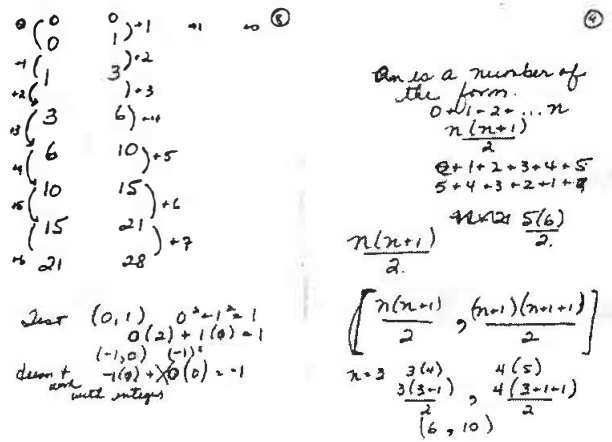 ③
0 0 0
0 1 +1 +1 +0
-1 1 3 +2
+2 +3
+3 3 6 +4
6 10 +5
+4
+5 10 15 +6
15 21 +7
+6 21 28
Test (0,1) 0² + 1² = 1
0(2) + 1(0) = 1
(-1,0) (-1)²
-1(0) + 0(0) = -1
doesn't
work
with integers
④
an is a number of
the form.
0+1+2+...n
n(n+1)
2
0+1+2+3+4+5
5+4+3+2+1+0
5(6)
2.
n(n+1)
2.
[ n(n+1) , (n+1)(n+1+1) ]
2 2
n=3 3(4) 4(5)
3(3+1) , 4(3+1+1)
2 2
(6, 10)